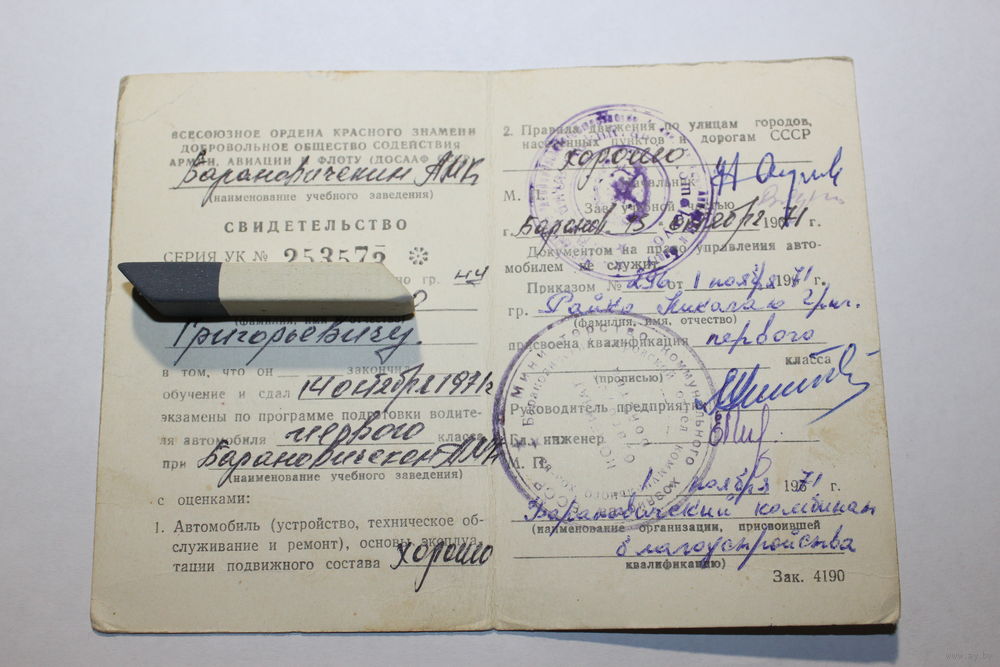 ВСЕСОЮЗНОЕ ОРДЕНА КРАСНОГО ЗНАМЕНИ
ДОБРОВОЛЬНОЕ ОБЩЕСТВО СОДЕЙСТВИЯ
АРМИИ, АВИАЦИИ И ФЛОТУ (ДОСААФ
(наименование учебного заведения)
СВИДЕТЕЛЬСТВО
СЕРИЯ УК № 253575
гр.
Григорьевичу
в том, что он законч
обучение и сдал 14 октября 1971г
экзамены по программе подготовки водите-
ля автомобиля первого класса
при
(наименование учебного заведения)
с оценками:
1. Автомобиль (устройство, техническое об-
служивание и ремонт), основы эксплуа-
тации подвижного состава хорошо
2. Правила движения по улицам городов,
населенных пунктов и дорогам СССР
хорошо
М. П. Начальник
Зав. учебной частью
г. Баранов. 15 октября 1971 г.
Документом на право управления авто-
мобилем не служит
Приказом № 296 от 1 ноября 1971 г.
гр. Райко Николаю Григ.
(фамилия, имя, отчество)
присвоена квалификация первого
класса
(прописью)
Руководитель предприятия
Гл. инженер
М. П.
1 ноября 1971 г.
Барановичский комбинат
(наименование организации, присвоившей
благоустройства
квалификацию)
Зак. 4190
www.ay.by